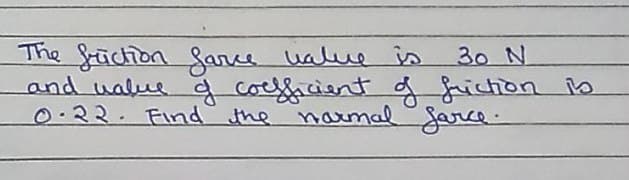 The friction force value is 30 N
and value of coefficient of friction is
0.22. Find the normal force.